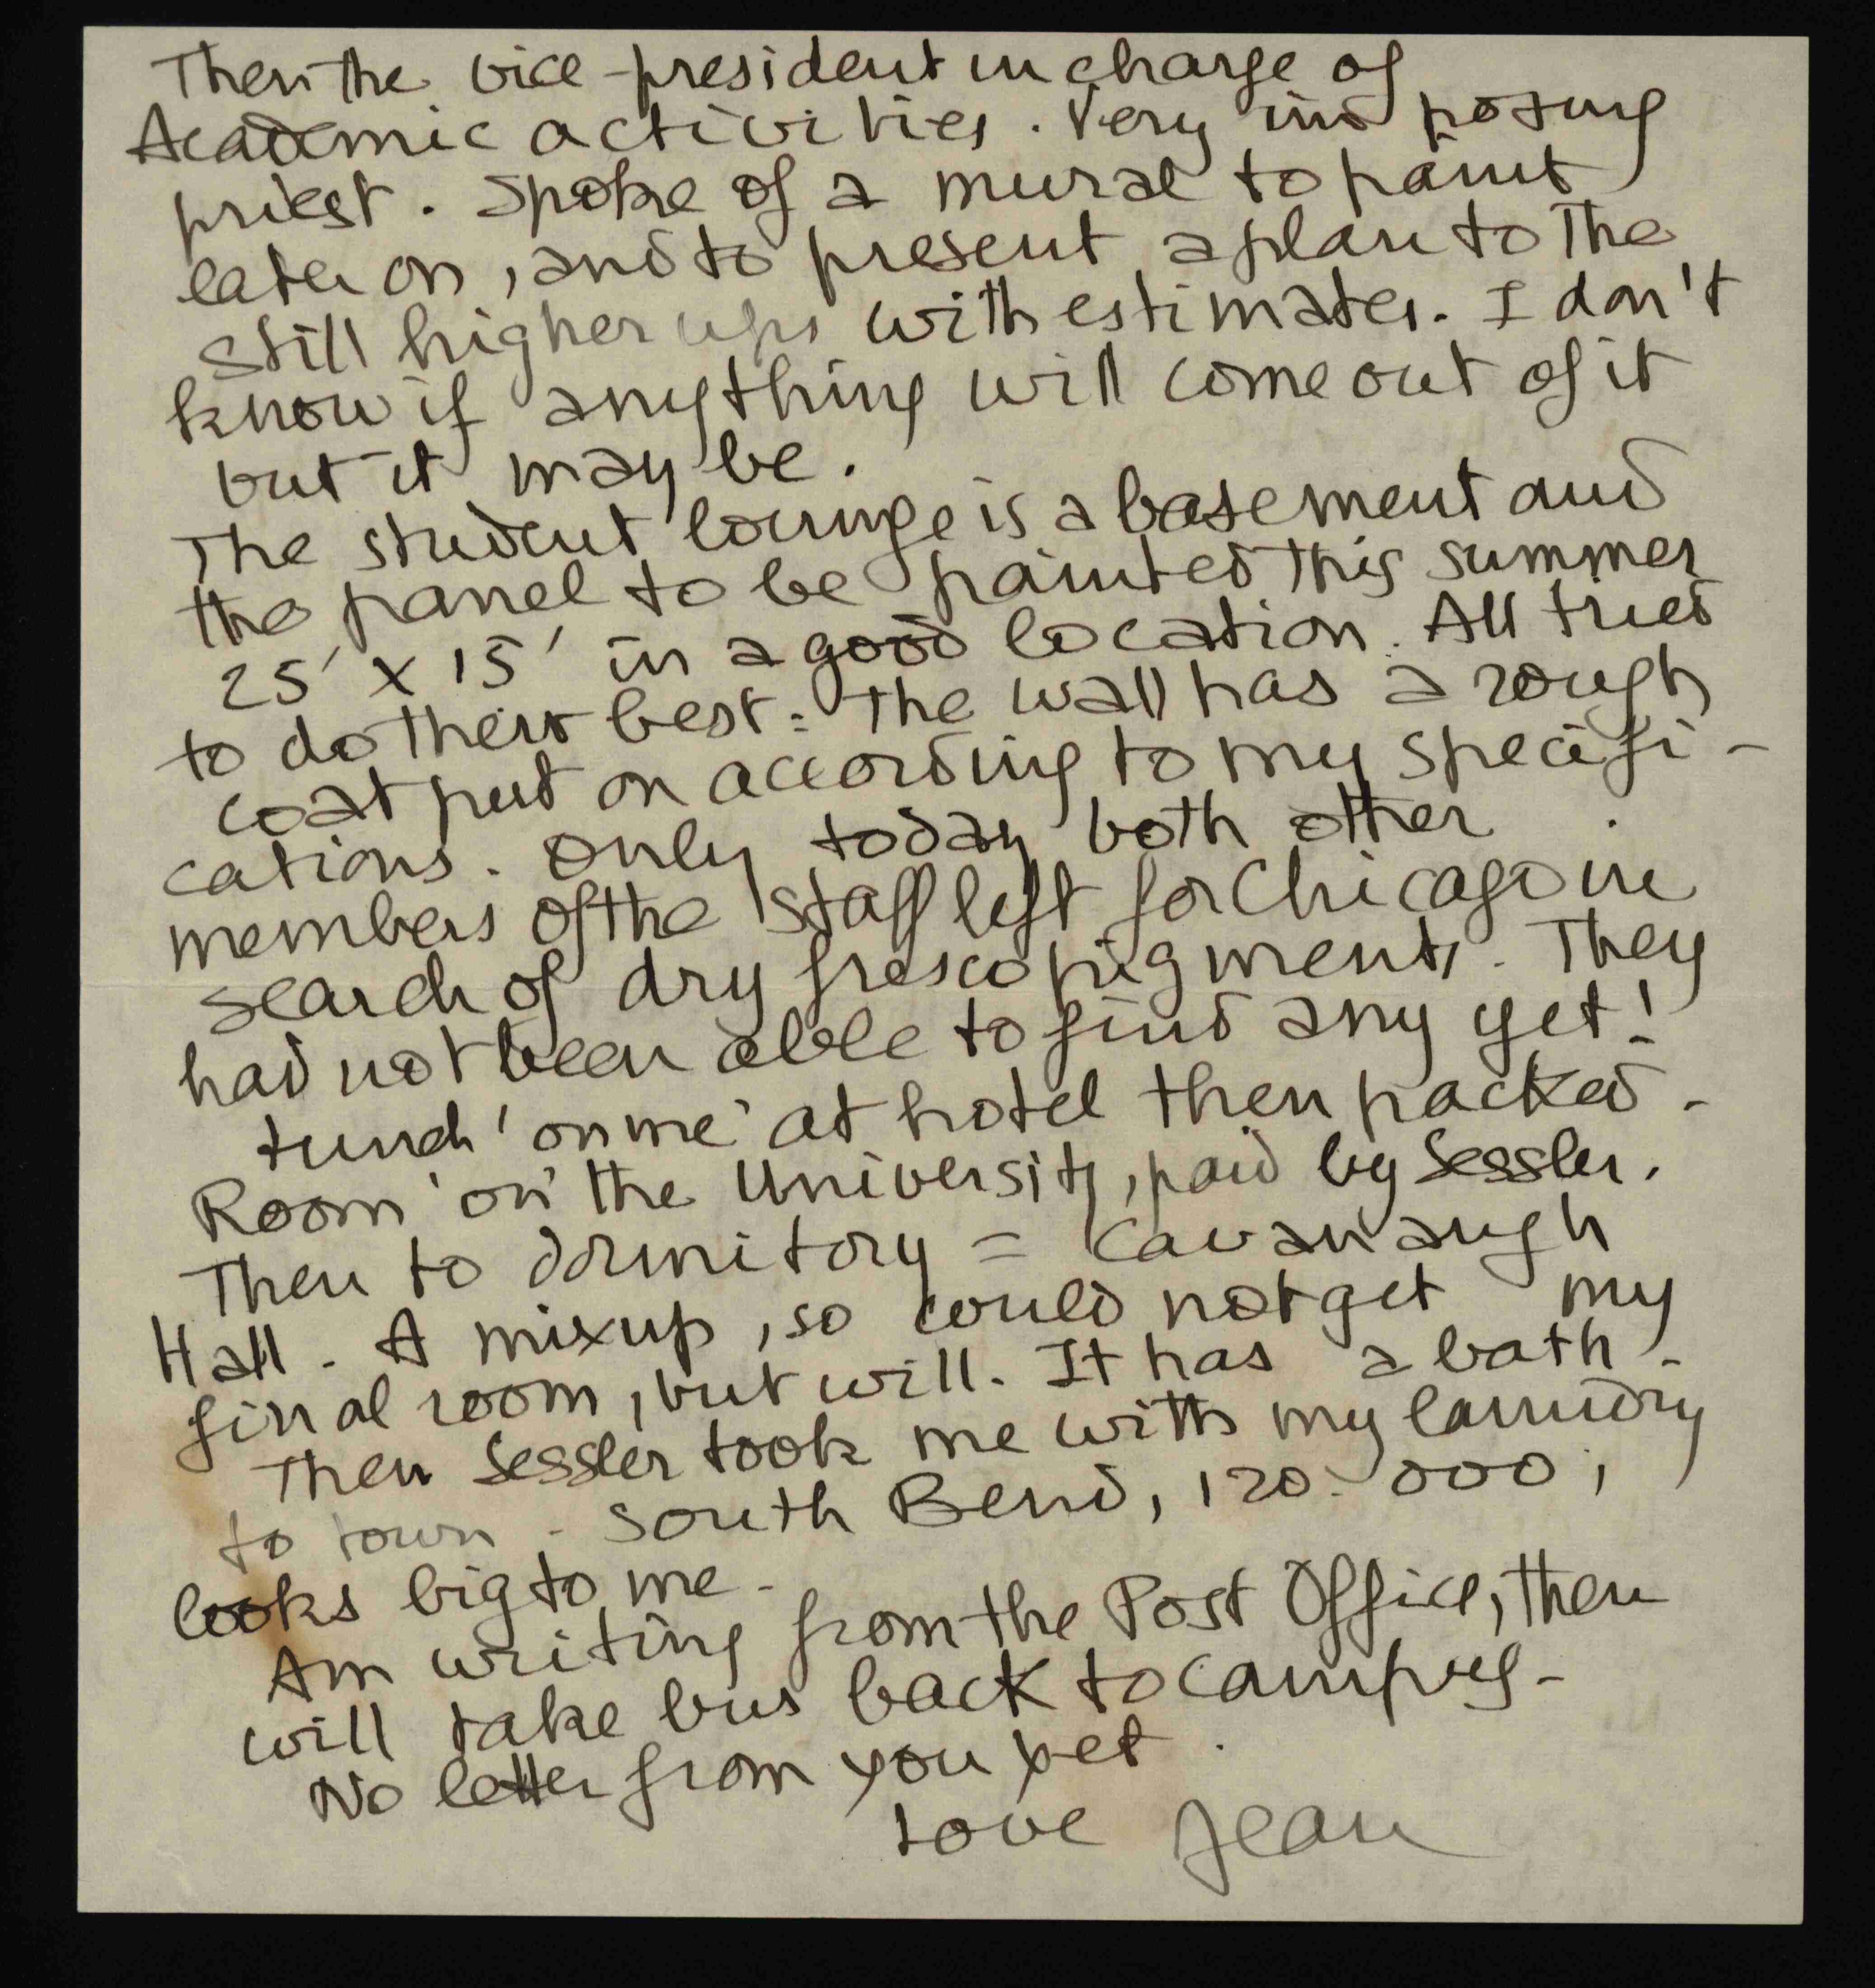 Then the vice-president in charge of
Academic activities. Very imposing
priest. Spoke of a mural to paint
later on, and to present a plan to the
still higher ups with estimates. I don't
know if anything will come out of it
but it may be.
The student lounge is a basement and
the panel to be painted this summer
25' x 15' in a good location. All tried
to do their best: The wall has a rough
coat put on according to my specifi-
cations. Only today both other
members of the staff left for Chicago in
search of dry fresco pigments. They
had not been able to find any yet!
Lunch 'on me' at hotel then packed -
Room 'on' the University, paid by Sessler.
Then to dormitory = Cavanaugh
Hall - A mixup, so could not get my
final room, but will. It has a bath -
Then Sessler took me with my laundry
to town - South Bend, 120.000,
looks big to me -
Am writing from the Post Office, then
will take bus back to campus -
No letter from you yet.
Love Jean